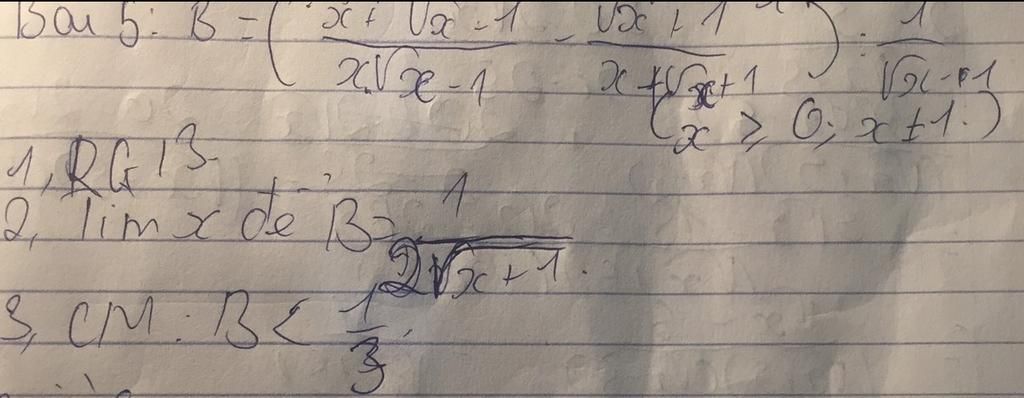 Bài 5: B = ( (x + √x - 1)/(x√x - 1) - (√x + 1)/(x + √x + 1) ) : 1/(√x - 1)
(x ≥ 0; x ≠ 1.)
1, RG B
2, Tìm x để B = 1/(2√x + 1).
3, CM: B < 1/3.